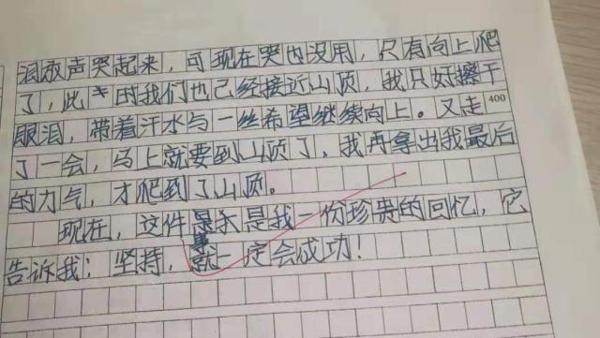 泪放声哭起来，可现在哭也没用，只有向上爬
了，此时我们也已经接近山顶，我只好擦干
400
眼泪，带着汗水与一丝希望继续向上。又走
了一会，马上就要到山顶了，我再拿出我最后
的力气，才爬到了山顶。
现在，这件事是我一份珍贵的回忆，它
告诉我：坚持，就一定会成功！